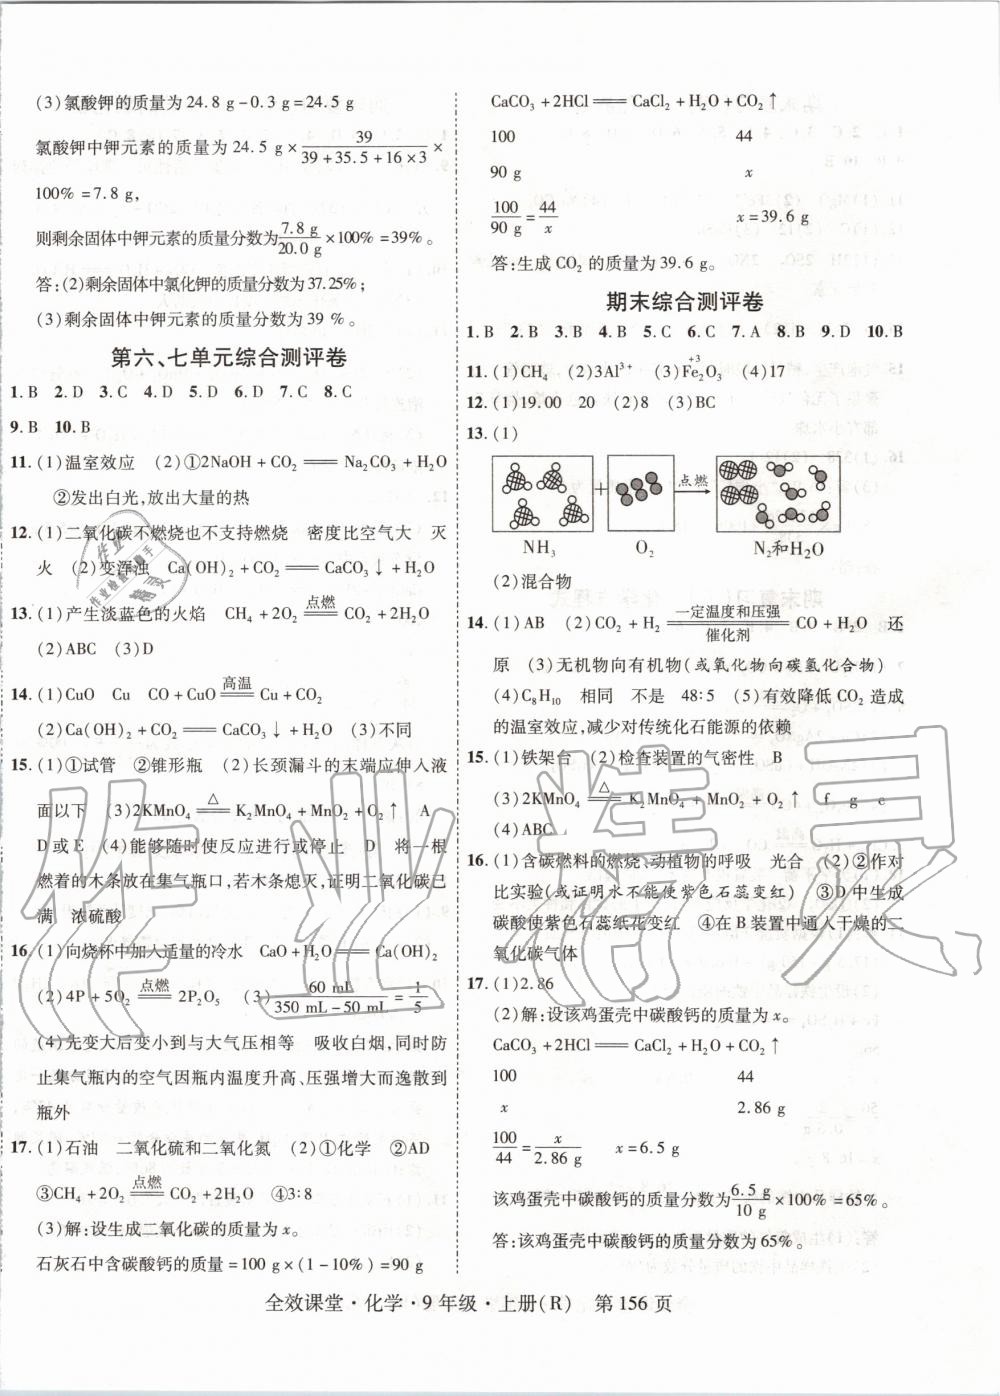 (3)氯酸钾的质量为24.8 g-0.3 g=24.5 g
氯酸钾中钾元素的质量为24.5 g×39/(39+35.5+16×3)×
100%=7.8 g,
则剩余固体中钾元素的质量分数为7.8 g/20.0 g×100%=39%。
答:(2)剩余固体中氯化钾的质量分数为37.25%;
(3)剩余固体中钾元素的质量分数为39%。
第六、七单元综合测评卷
1. B 2. D 3. C 4. D 5. D 6. D 7. C 8. C
9. B 10. B
11. (1)温室效应 (2)①2NaOH+CO₂══Na₂CO₃+H₂O
②发出白光,放出大量的热
12. (1)二氧化碳不燃烧也不支持燃烧 密度比空气大 灭
火 (2)变浑浊 Ca(OH)₂+CO₂══CaCO₃↓+H₂O
13. (1)产生淡蓝色的火焰 CH₄+2O₂ 点燃══ CO₂+2H₂O
(2)ABC (3)D
14. (1)CuO Cu CO+CuO 高温══ Cu+CO₂
(2)Ca(OH)₂+CO₂══CaCO₃↓+H₂O (3)不同
15. (1)①试管 ②锥形瓶 (2)长颈漏斗的末端应伸入液
面以下 (3)2KMnO₄ △══ K₂MnO₄+MnO₂+O₂↑ A
D或E (4)能够随时使反应进行或停止 D 将一根
燃着的木条放在集气瓶口,若木条熄灭,证明二氧化碳已
满 浓硫酸
16. (1)向烧杯中加入适量的冷水 CaO+H₂O══Ca(OH)₂
(2)4P+5O₂ 点燃══ 2P₂O₅ (3)60 mL/(350 mL-50 mL)=1/5
(4)先变大后变小到与大气压相等 吸收白烟,同时防
止集气瓶内的空气因瓶内温度升高、压强增大而逸散到
瓶外
17. (1)石油 二氧化硫和二氧化氮 (2)①化学 ②AD
③CH₄+2O₂ 点燃══ CO₂+2H₂O ④3:8
(3)解:设生成二氧化碳的质量为x。
石灰石中含碳酸钙的质量=100 g×(1-10%)=90 g
CaCO₃+2HCl══CaCl₂+H₂O+CO₂↑
100 44
90 g x
100/90 g=44/x x=39.6 g
答:生成CO₂的质量为39.6 g。
期末综合测评卷
1. B 2. B 3. B 4. B 5. C 6. C 7. A 8. B 9. D 10. B
11. (1)CH₄ (2)3Al³⁺ (3)Fe₂O₃(+3) (4)17
12. (1)19.00 20 (2)8 (3)BC
13. (1)
点燃
NH₃ O₂ N₂和H₂O
(2)混合物
14. (1)AB (2)CO₂+H₂ 一定温度和压强══催化剂 CO+H₂O 还
原 (3)无机物向有机物(或氧化物向碳氢化合物)
(4)C₈H₁₀ 相同 不是 48:5 (5)有效降低CO₂造成
的温室效应,减少对传统化石能源的依赖
15. (1)铁架台 (2)检查装置的气密性 B
(3)2KMnO₄ △══ K₂MnO₄+MnO₂+O₂↑ f g e
(4)ABC
16. (1)含碳燃料的燃烧、动植物的呼吸 光合 (2)②作对
比实验(或证明水不能使紫色石蕊变红) ③D中生成
碳酸使紫色石蕊纸花变红 ④在B装置中通入干燥的二
氧化碳气体
17. (1)2.86
(2)解:设该鸡蛋壳中碳酸钙的质量为x。
CaCO₃+2HCl══CaCl₂+H₂O+CO₂↑
100 44
x 2.86 g
100/44=x/2.86 g x=6.5 g
该鸡蛋壳中碳酸钙的质量分数为6.5 g/10 g×100%=65%。
答:该鸡蛋壳中碳酸钙的质量分数为65%。
全效课堂·化学·9年级·上册(R) 第156页
作业精灵